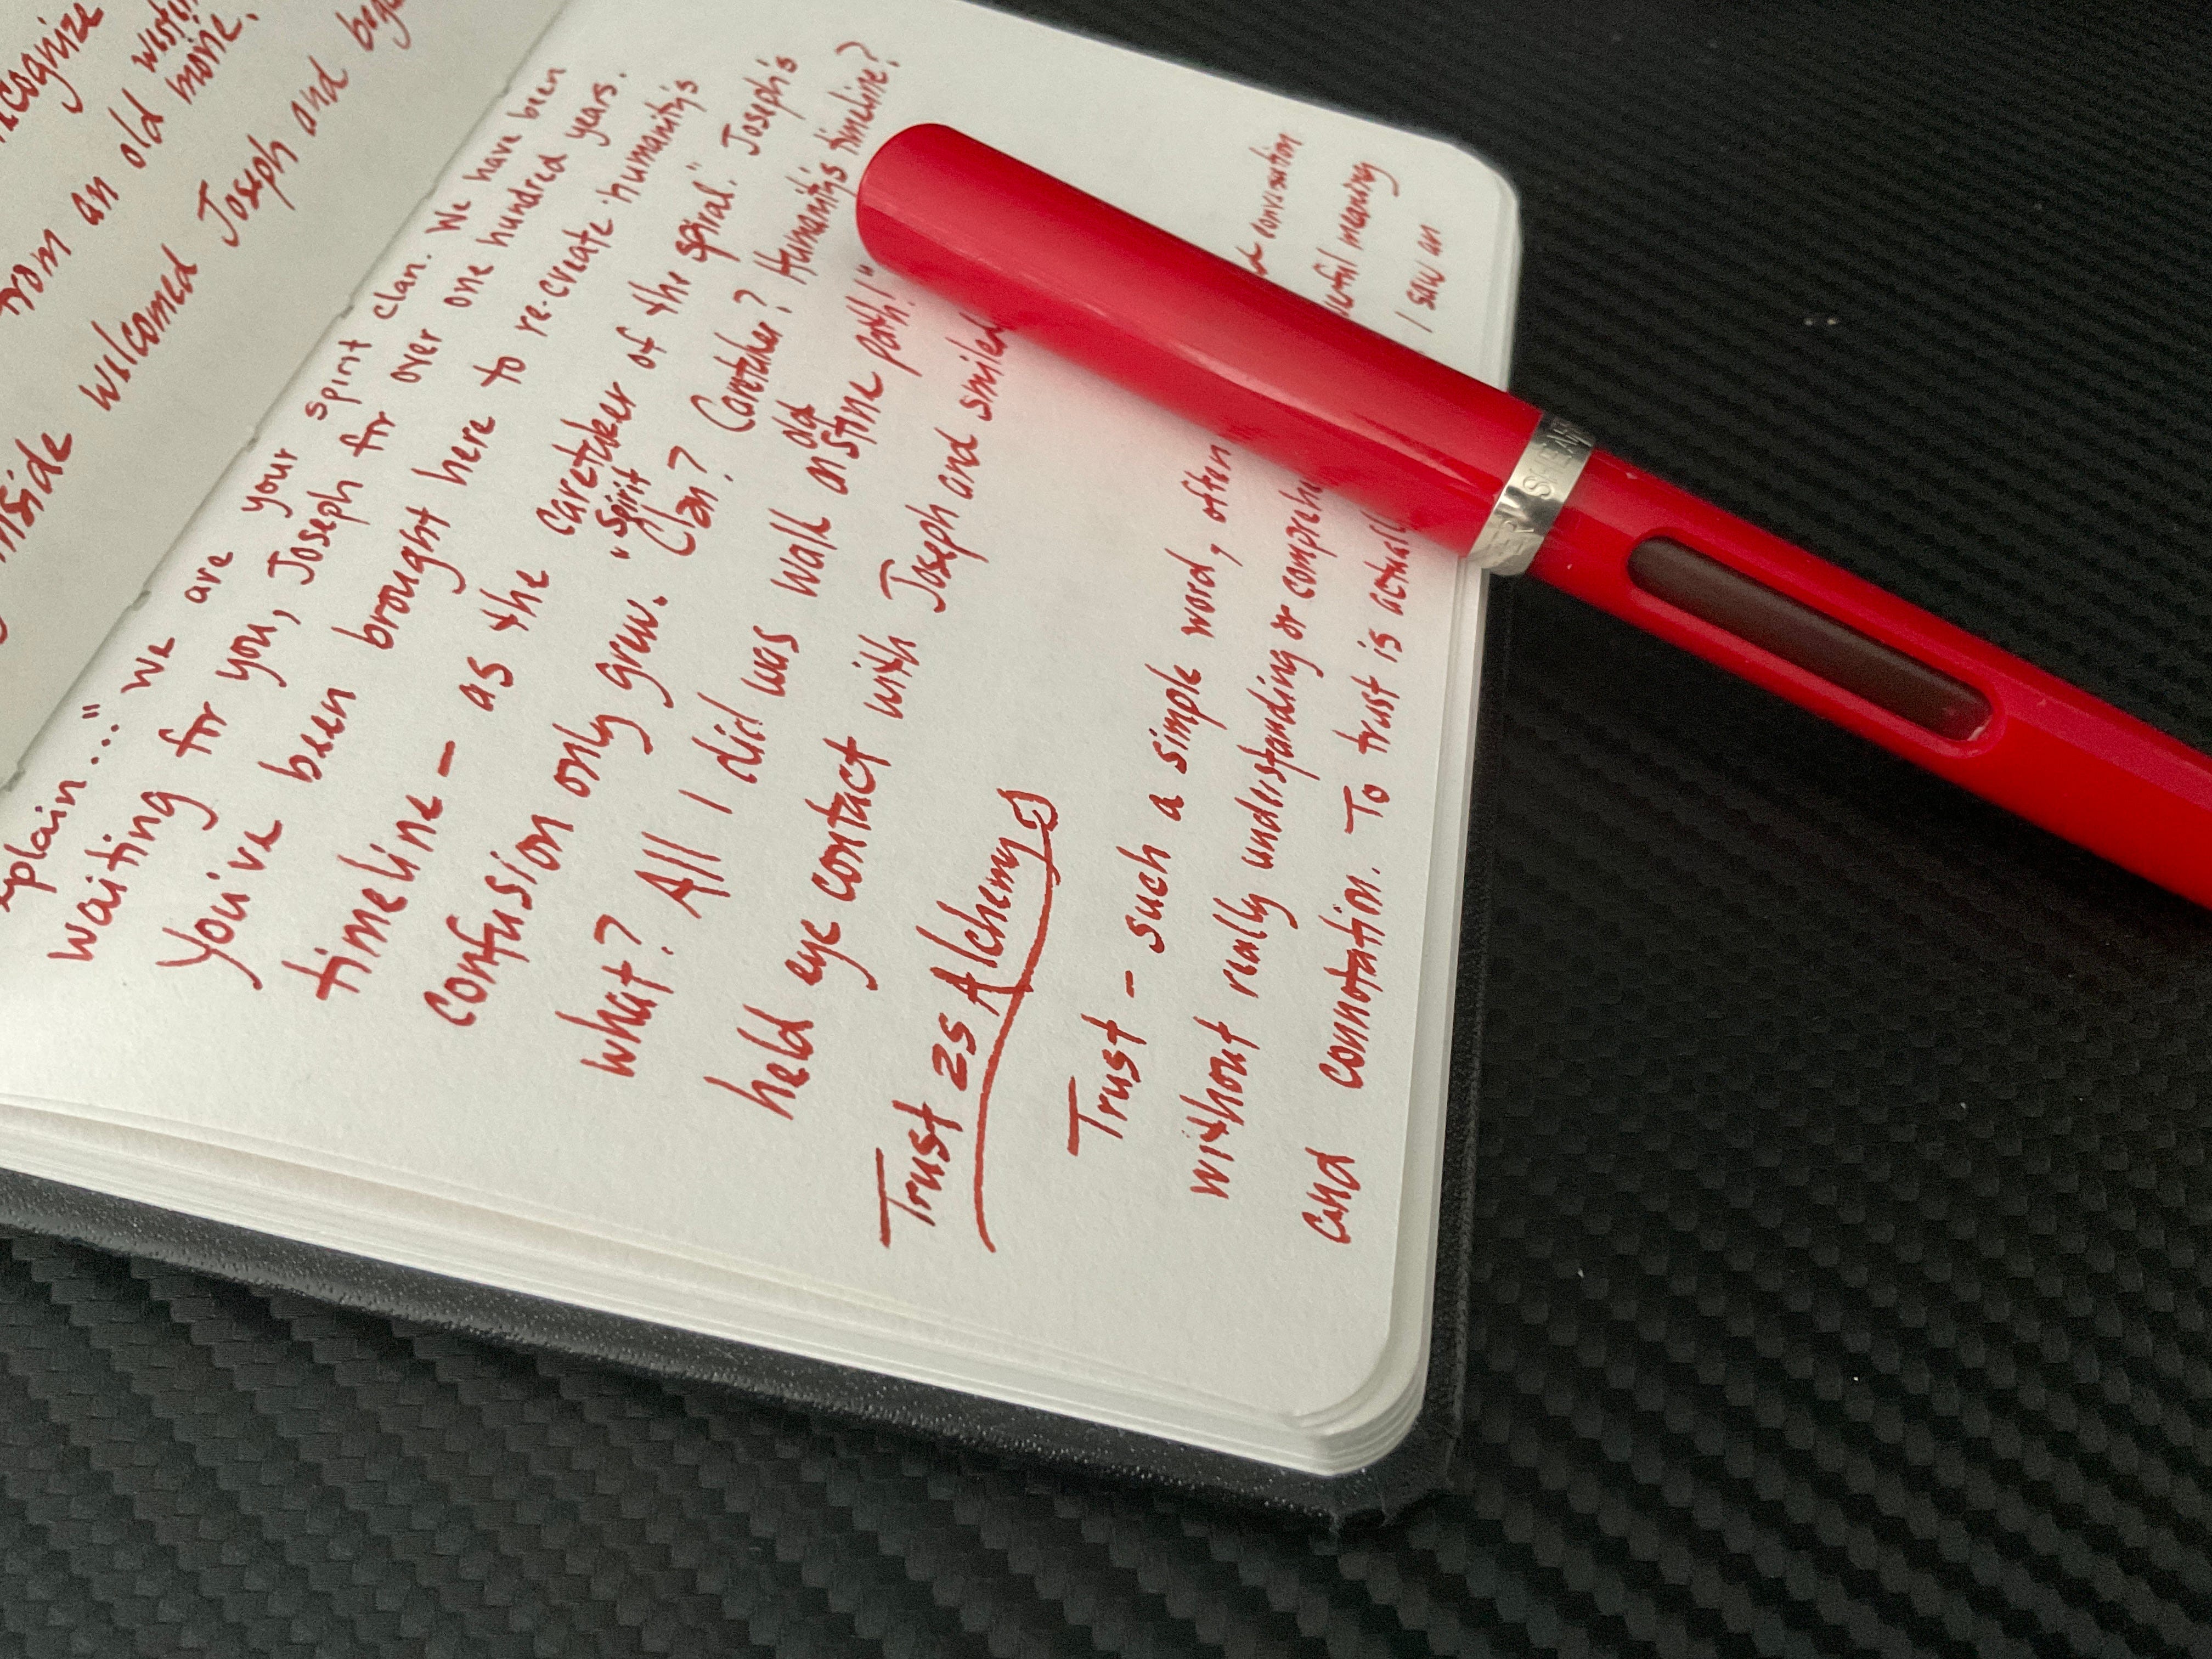 cognize
from an old western movie.
inside welcomed Joseph and bega
plain..." We are your spirit clan. We have been
waiting for you, Joseph for over one hundred years.
You've been brought here to re-create humanity's
timeline - as the caretaker of the spiral." Joseph's
confusion only grew. "Spirit Clan? Caretaker? Humanity's timeline?
what? All I did was walk an old stone path!"
held eye contact with Joseph and smiled
Trust as Alchemy
Trust - such a simple word, often conversation
without really understanding or comprehe meaning
and connotation. To trust is actuall I saw an
SHEAF